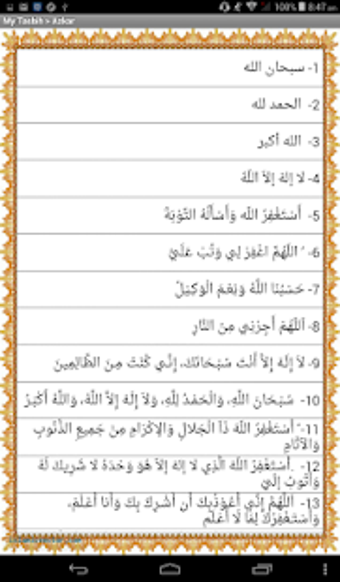 100% 8:47 am
My Tasbih > Azkar
1- سبحان الله
2- الحمد لله
3- الله أكبر
4- لا إله إلاّ اللّهُ
5- أَسْتَغْفِرُ اللّه وَأَسْأَلُهُ التَّوْبَةُ
6- اللّهُمَّ اغْفِرْ لِي وَتُبْ عَلَيَّ
7- حَسْبُنَا اللَّهُ وَنِعْمَ الْوَكِيلُ
8- اللّهُمَّ أَجِرْنِي مِنَ النَّارِ
9- لاَ إِلَهَ إِلاَّ أَنْتَ سُبْحَانَكَ، إِنِّي كُنْتُ مِنَ الظَّالِمِينَ
10- سُبْحَانَ اللَّهِ، وَالْحَمْدُ لِلَّهِ، وَلاَ إِلَهَ إِلاَّ اللَّهُ، وَاللَّهُ أَكْبَرُ
11- أَسْتَغْفِرُ اللَّهَ ذَاْ الْجَلالِ وَالإِكْرَامِ مِنَ جَمِيعِ الذُّنُوبِ
وَالآثَامِ
12- .أَسْتَغْفِرُ اللّهَ الَّذِي لا إلهَ إلاَّ هُوَ وَحْدَهُ لا شَرِيكَ لَهُ
وَأَتُوبُ إِلَيْ
13- اللَّهُمَّ إِنِّي أَعُوْذُبِكَ أَن أُشْرِكَ بِكَ وَأَنا أَعْلَمُ،
وَأَسْتَغْفِرُكَ لِمَا لَا أَعْلَم